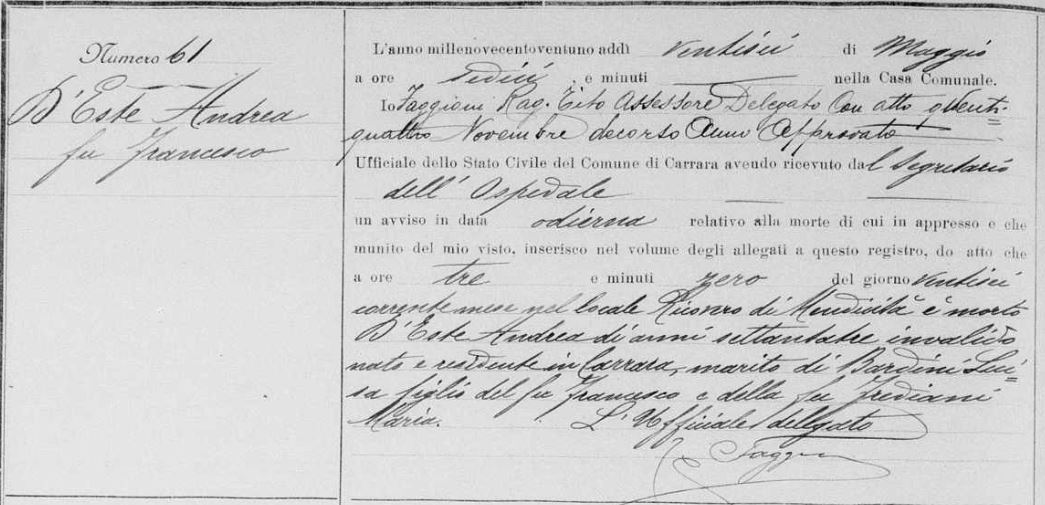 Numero 61
D'Este Andrea
fu Francesco
L'anno millenovecentoventuno addì ventisei di Maggio
a ore sedici, e minuti nella Casa Comunale.
Io Faggioni Rag. Tito Assessore Delegato con atto venti=
quattro Novembre decorso Anno Approvato
Ufficiale dello Stato Civile del Comune di Carrara avendo ricevuto dal Segretario
dell'Ospedale
un avviso in data odierna relativo alla morte di cui in appresso e che
munito del mio visto, inserisco nel volume degli allegati a questo registro, do atto che
a ore tre e minuti zero del giorno ventisei
corrente mese nel locale Ricovero di Mendicità è morto
D'Este Andrea di anni settantatre invalido
nato e residente in Carrara, marito di Bardini Lui=
sa figlio del fu Francesco e della fu Frediani
Maria. L'Ufficiale delegato